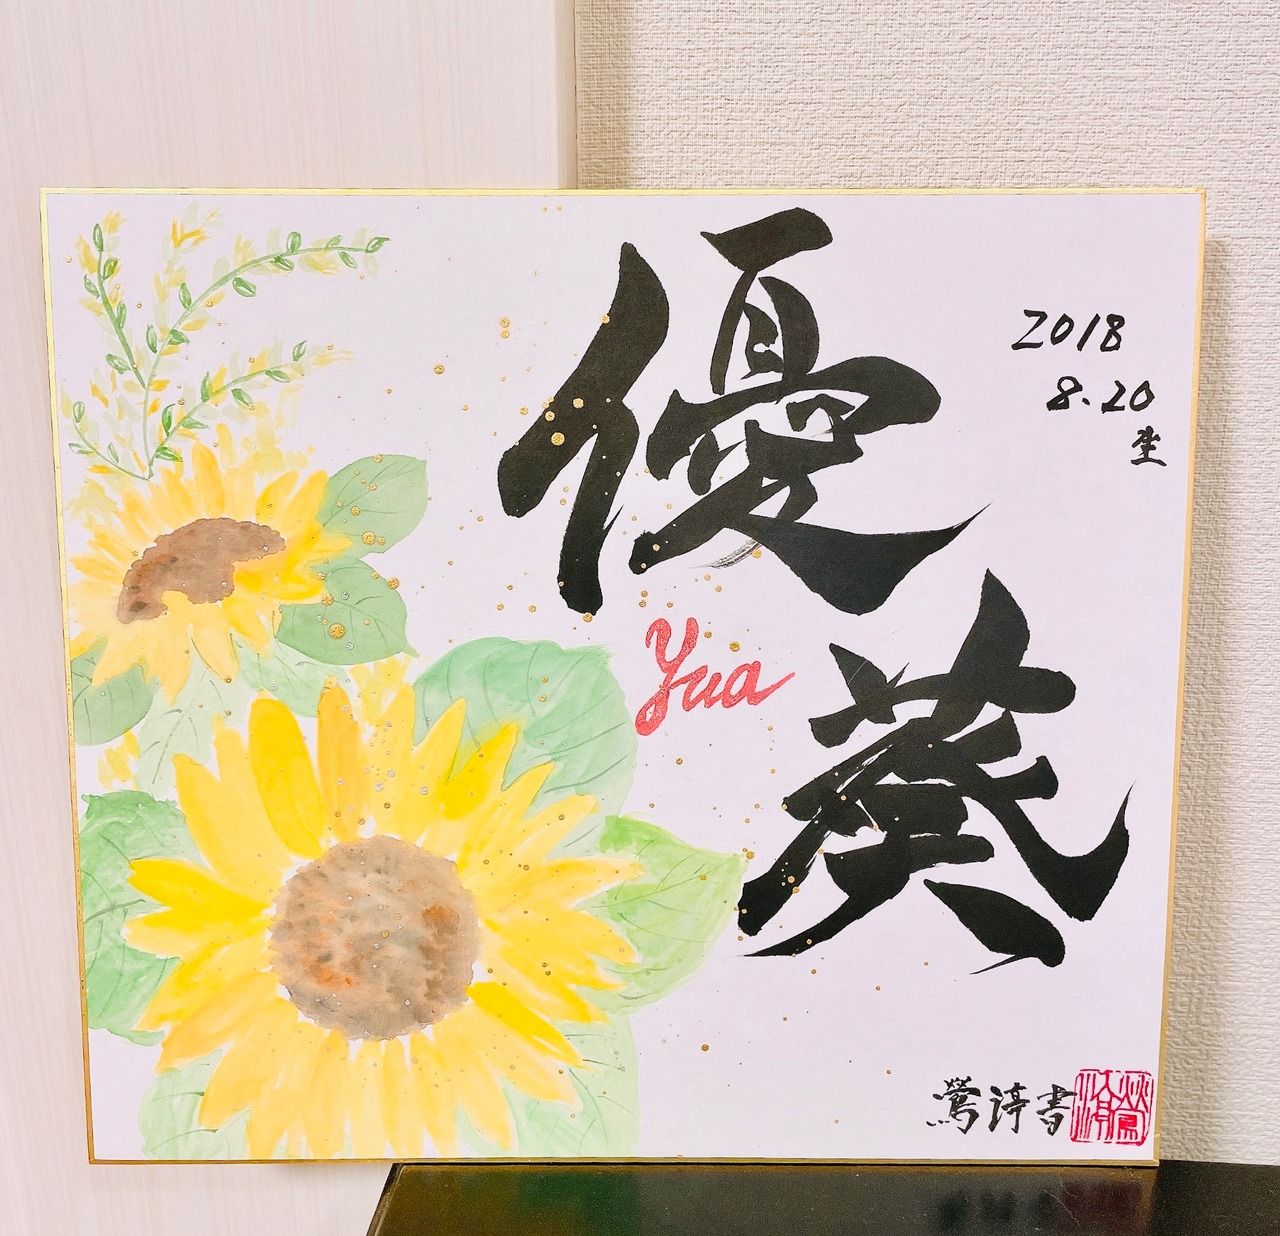 優葵
Yua
2018
8.20
生
書